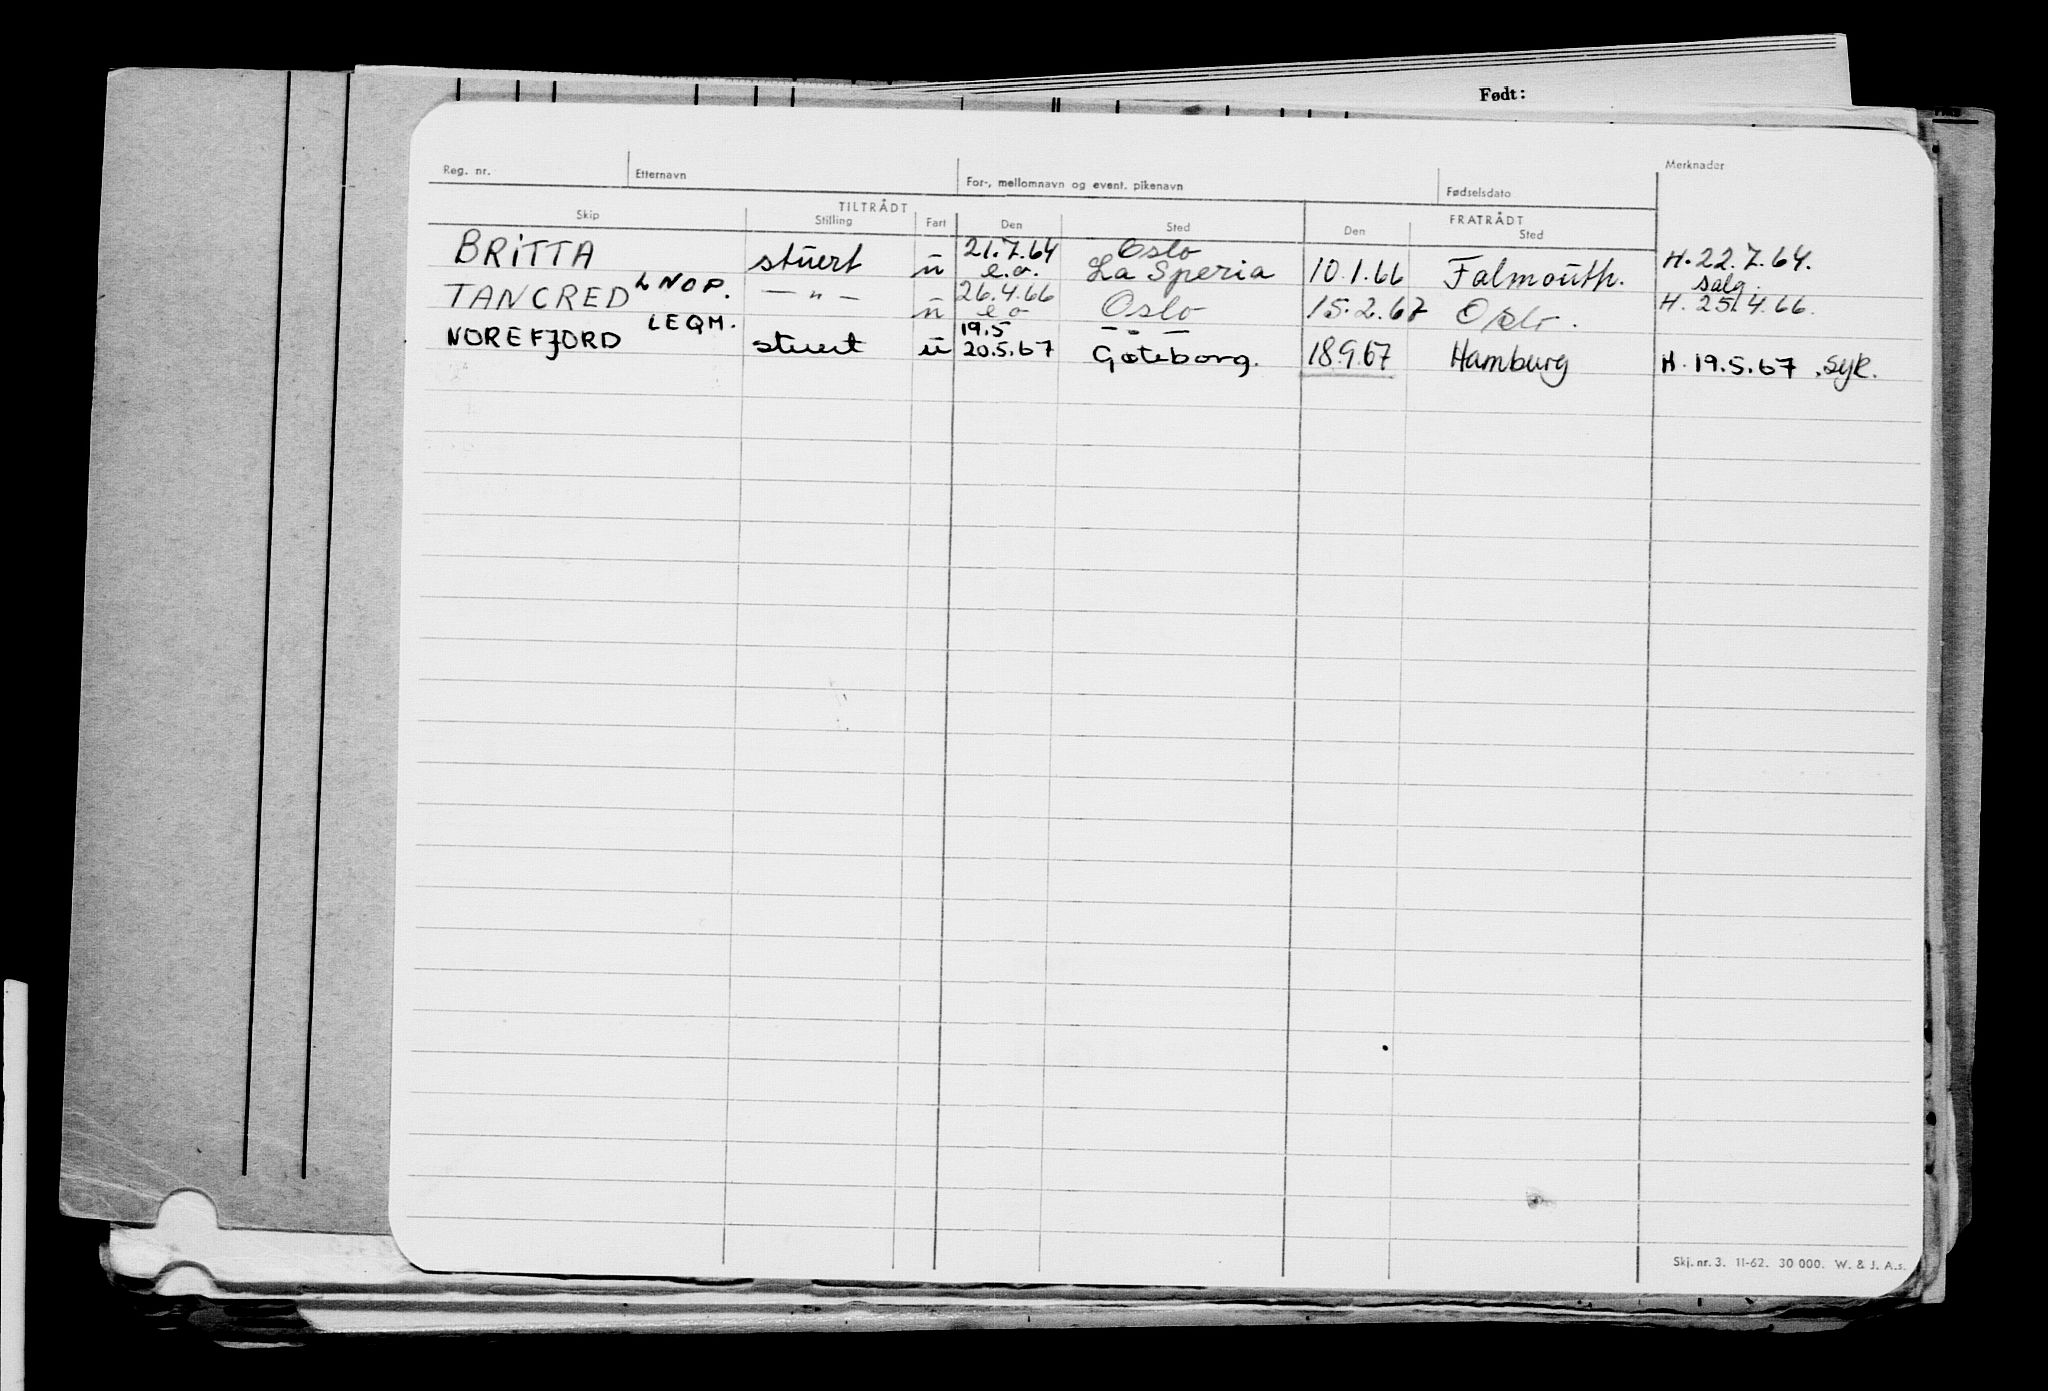 Født:
Reg. nr. Etternavn For-, mellomnavn og event. pikenavn Fødselsdato Merknader
TILTRÅDT FRATRÅDT
Skip Stilling Fart Den Sted Den Sted
BRITTA stuert u 21.7.64 Oslo H. 22.7.64.
e.o. La Speria 10.1.66 Falmouth. salg.
TANCRED LNOP. — " — u 26.4.66 Oslo 15.2.67 Oslo. H. 25.4.66.
e o
NOREFJORD LEQM. stuert u 19.5 — " —
20.5.67 Gøteborg. 18.9.67 Hamburg H. 19.5.67. syk.
Skj. nr. 3. 11-62. 30 000. W. & J. A.s.